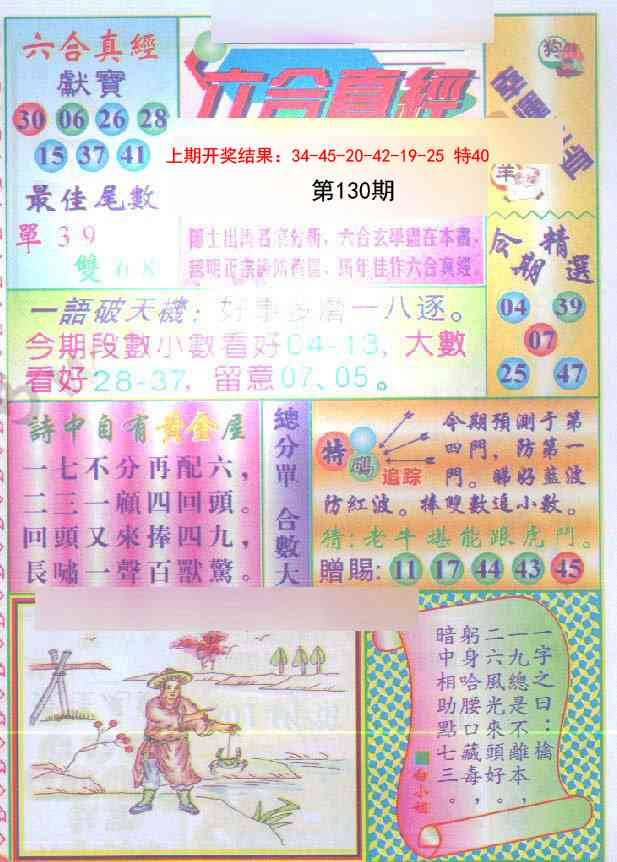 六合真經
獻寶
30 06 26 28
15 37 41
最佳尾數
單 3 9
雙 6 8
六合真經
上期开奖结果：34-45-20-42-19-25 特40
第130期
狗
羊
今期
精選
04 39
07
25 47
一語破天機：好事多磨一八逐。
今期段數小數看好04-13，大數
看好28-37，留意07、05。
詩中自有黄金屋
一七不分再配六，
二三一顧四回頭。
回頭又來捧四九，
長嘯一聲百獸驚。
總分單 合數大
特碼
追踪
今期預測于第
四門，防第一
門。睇好藍波
防紅波。捧雙數追小數。
猜：老牛堪能跟虎鬥。
贈賜：11 17 44 43 45
一字之曰：檎
一九總是不離本，
二六風光來頭好。
躬身哈腰口藏毒，
暗中相助點七三。
白小姐